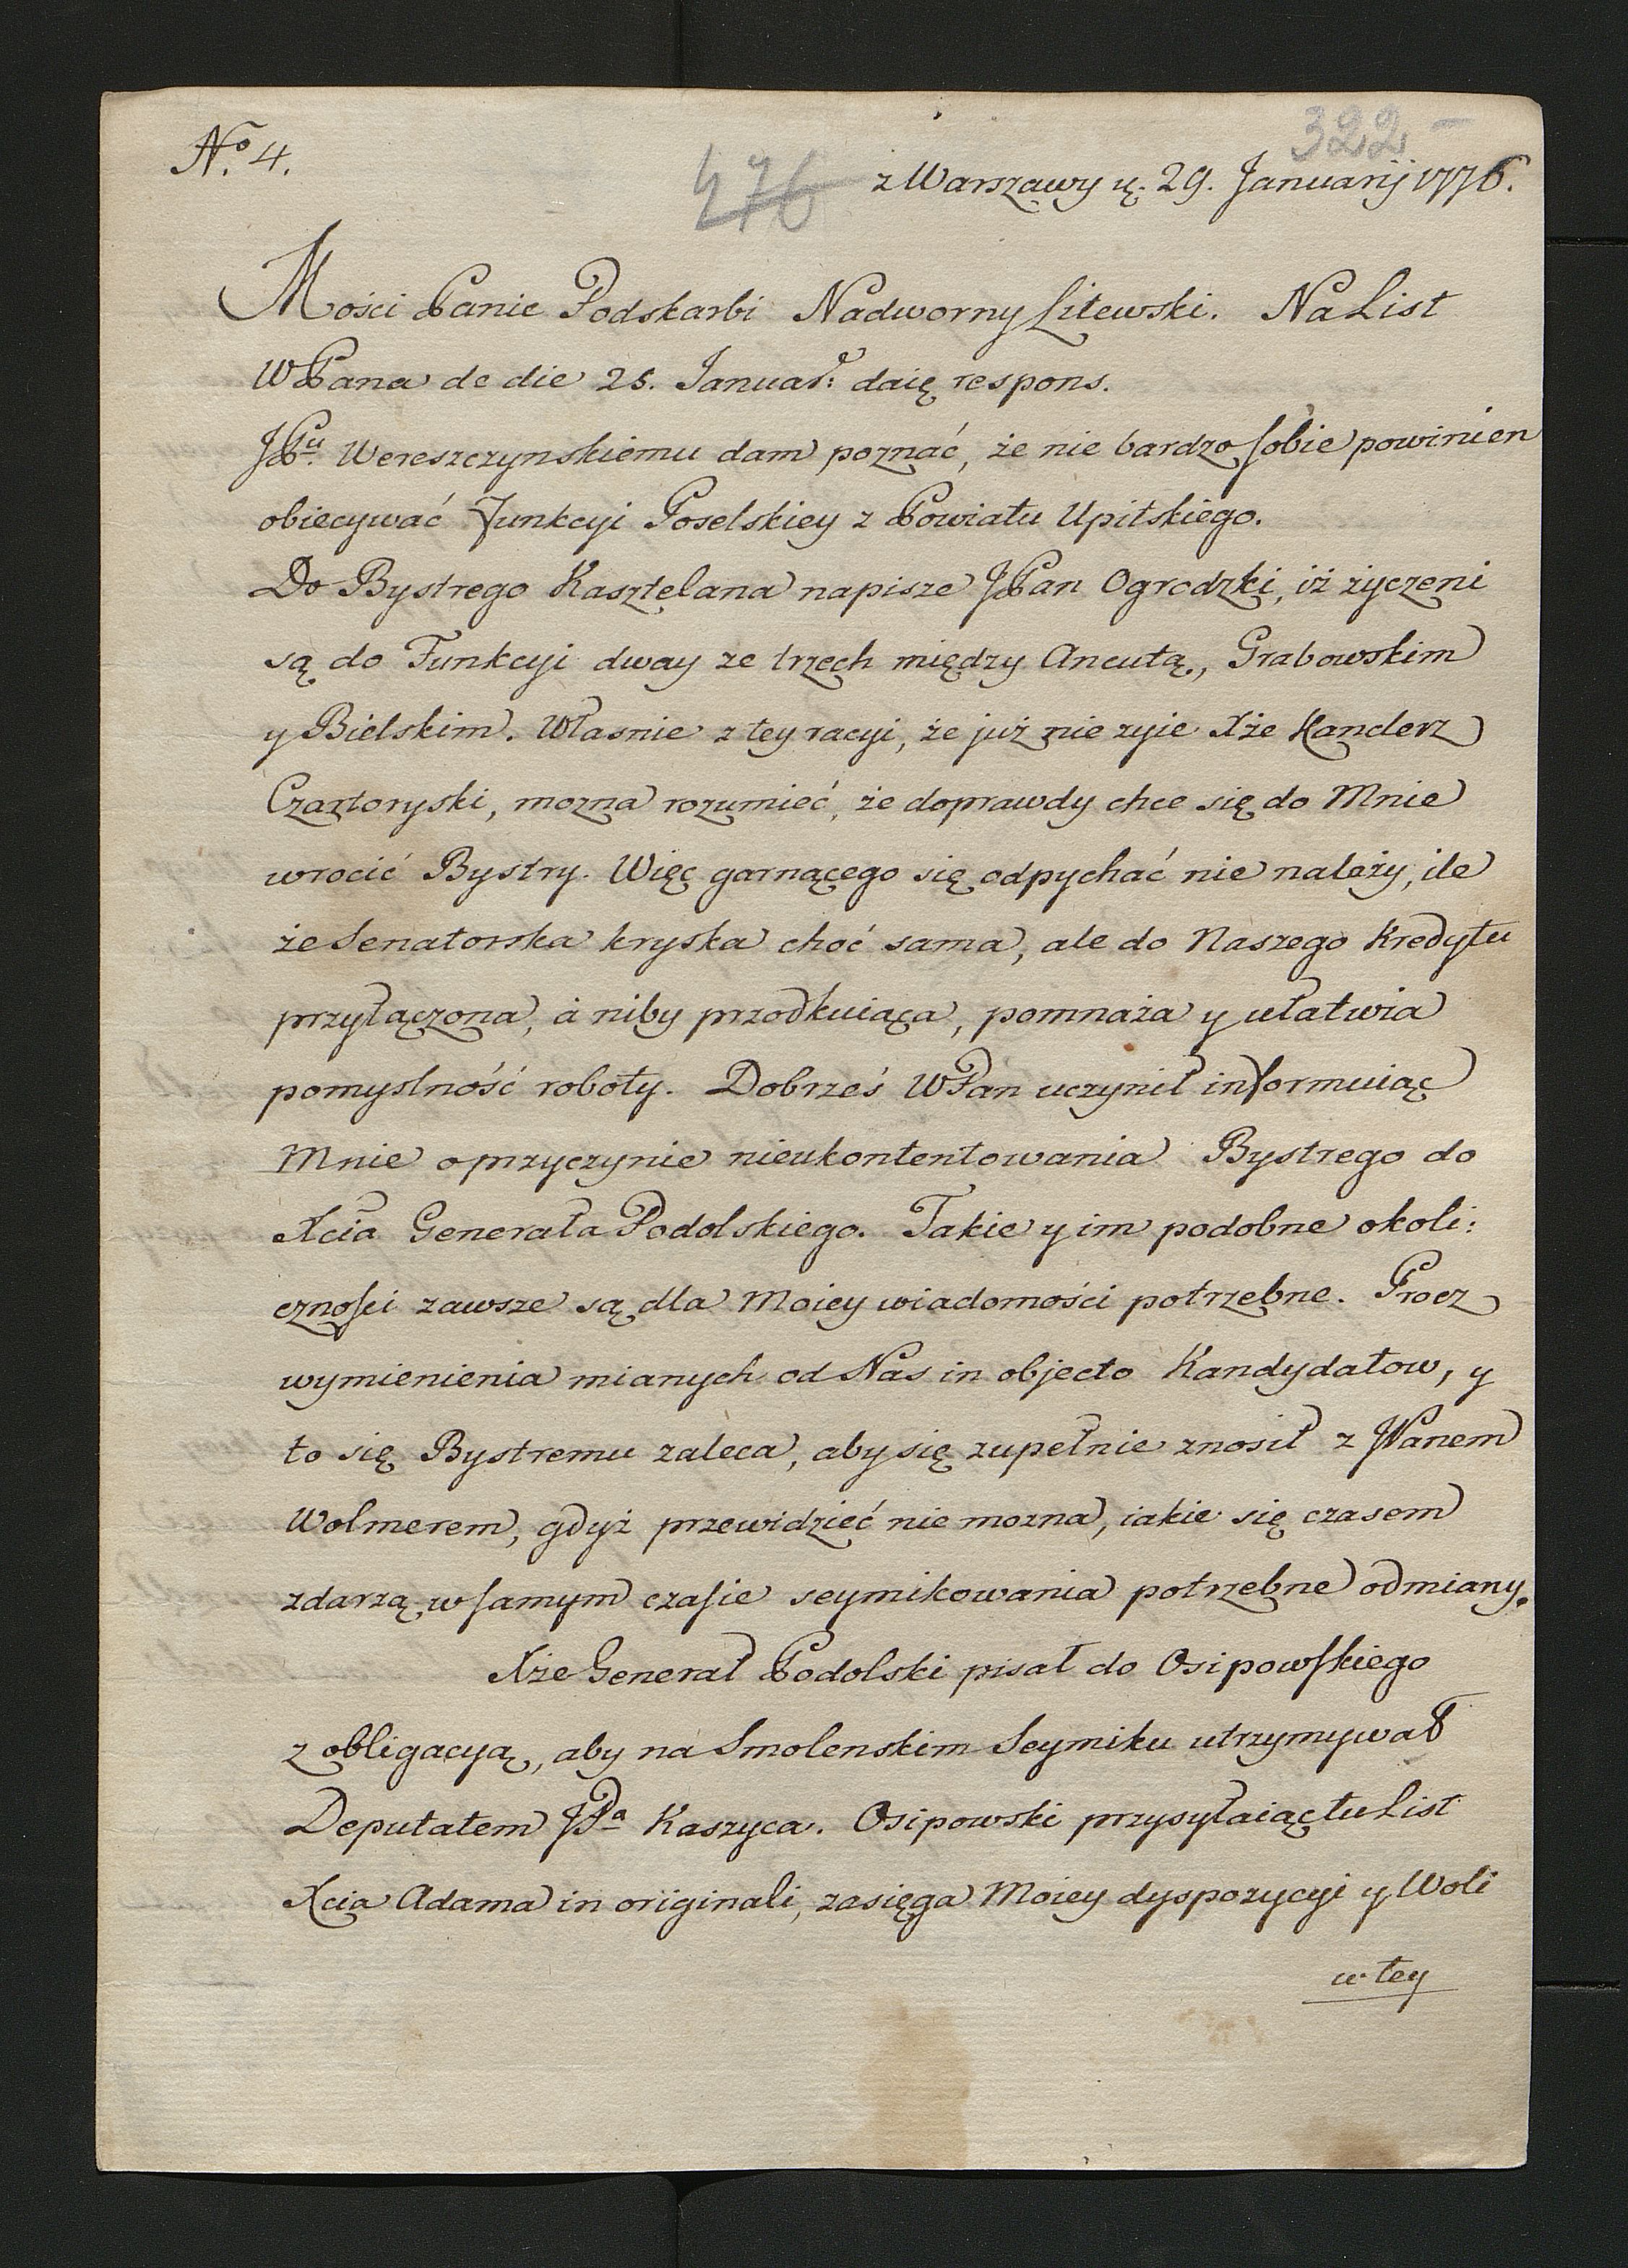 322
N.o 4.
476
z Warszawy d. 29. Januarij 1776.
Mości Panie Podskarbi Nadworny Litewski. Na List
WPana de die 25. Januar: daię respons.
JPu. Wereszczynskiemu dam poznać, że nie bardzo sobie powinien
obiecywać Funkcyi Poselskiey z Powiatu Upitskiego.
Do Bystrego Kasztelana napisze JPan Ogrodzki, iż życzeni
są do Funkcyi dway ze trzech między Ancutą, Grabowskim
y Bielskim. Własnie z tey racyi, że już nie zyie Xże Kanclerz
Czartoryski, mozna rozumieć, że doprawdy chce się do Mnie
wrocić Bystry. Więc garnącego się odpychać nie należy, ile
że Senatorska kryska choć sama, ale do Naszego Kredytu
przyłączona, à niby przodkuiąca, pomnaża y ułatwia
pomyslność roboty. Dobrześ WPan uczynił informuiąc
Mnie o przyczynie nieukontentowania Bystrego do
Xcia Generała Podolskiego. Takie y im podobne okoli:
cznosci zawsze są dla Moiey wiadomości potrzebne. Procz
wymienienia mianych od Nas in objecto Kandydatow, y
to się Bystremu zaleca, aby się zupełnie znosił z JPanem
Wolmerem, gdyż przewidzieć nie mozna, iakie się czasem
zdarzą w samym czasie seymikowania potrzebne odmiany.
Xże Generał Podolski pisał do Osipowskiego
z obligacyą, aby na Smolenskim Seymiku utrzymywał
Deputatem JPa Kaszyca. Osipowski przysyłaiąc tu List
Xcia Adama in originali, zasięga Moiey dyspozycyi y Woli
w tey